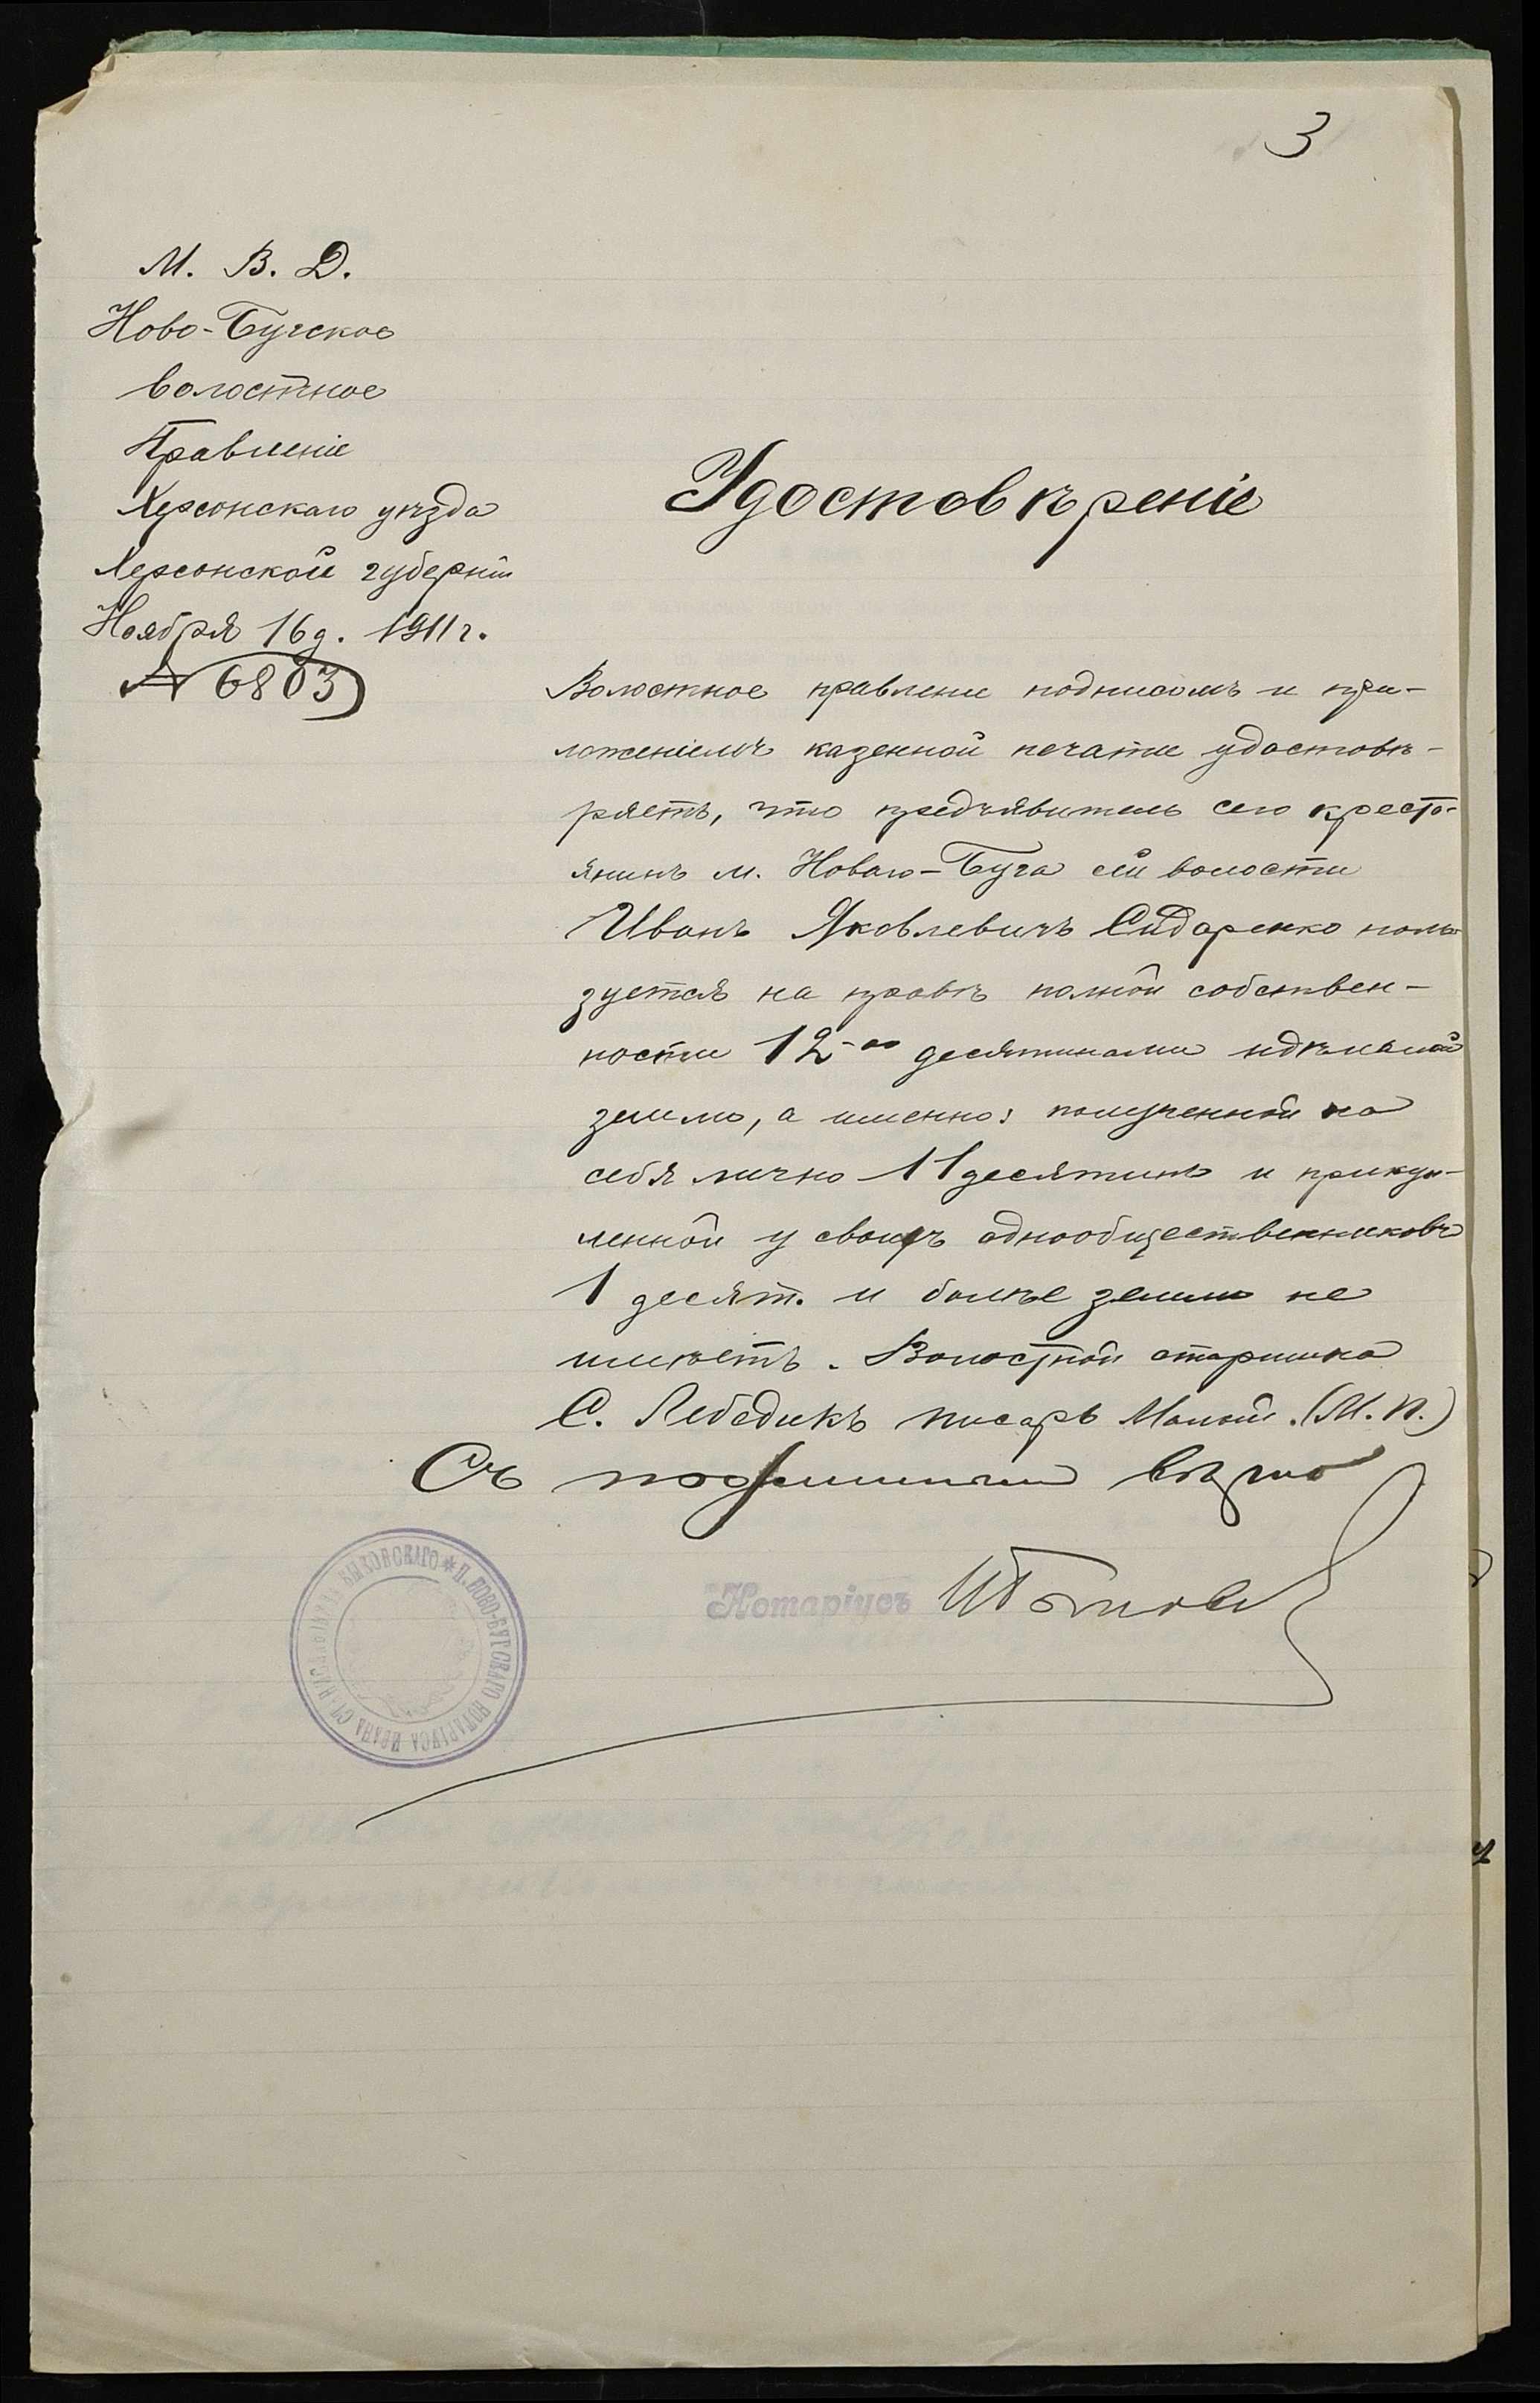 3
М. В. Д.
Ново-Бугское
волостное
Правленіе
Херсонскаго уѣзда
Херсонской губерніи
Ноября 16 д. 1911 г.
№ 6803
Удостовѣреніе
Волостное правленіе подписомъ и при-
ложеніемъ казенной печати удостовѣ-
ряетъ, что предъявитель сего кресть-
янинъ м. Новаго-Буга сей волости
Иванъ Яковлевичъ Сидоренко поль-
зуется на правѣ полной собствен-
ности 12-ю десятинами надѣльной
земли, а именно: полученной на
себя лично 11 десятинъ и прикуп-
ленной у своихъ однообщественниковъ
1 десят. и болѣе земли не
имѣетъ. Волостной старшина
С. Лебедикъ писарь Малый. (М. П.)
Съ подлиннымъ вѣрно
Нотаріусъ
П. НОВО-БУГСКАГО НОТАРІУСА ИВАНА